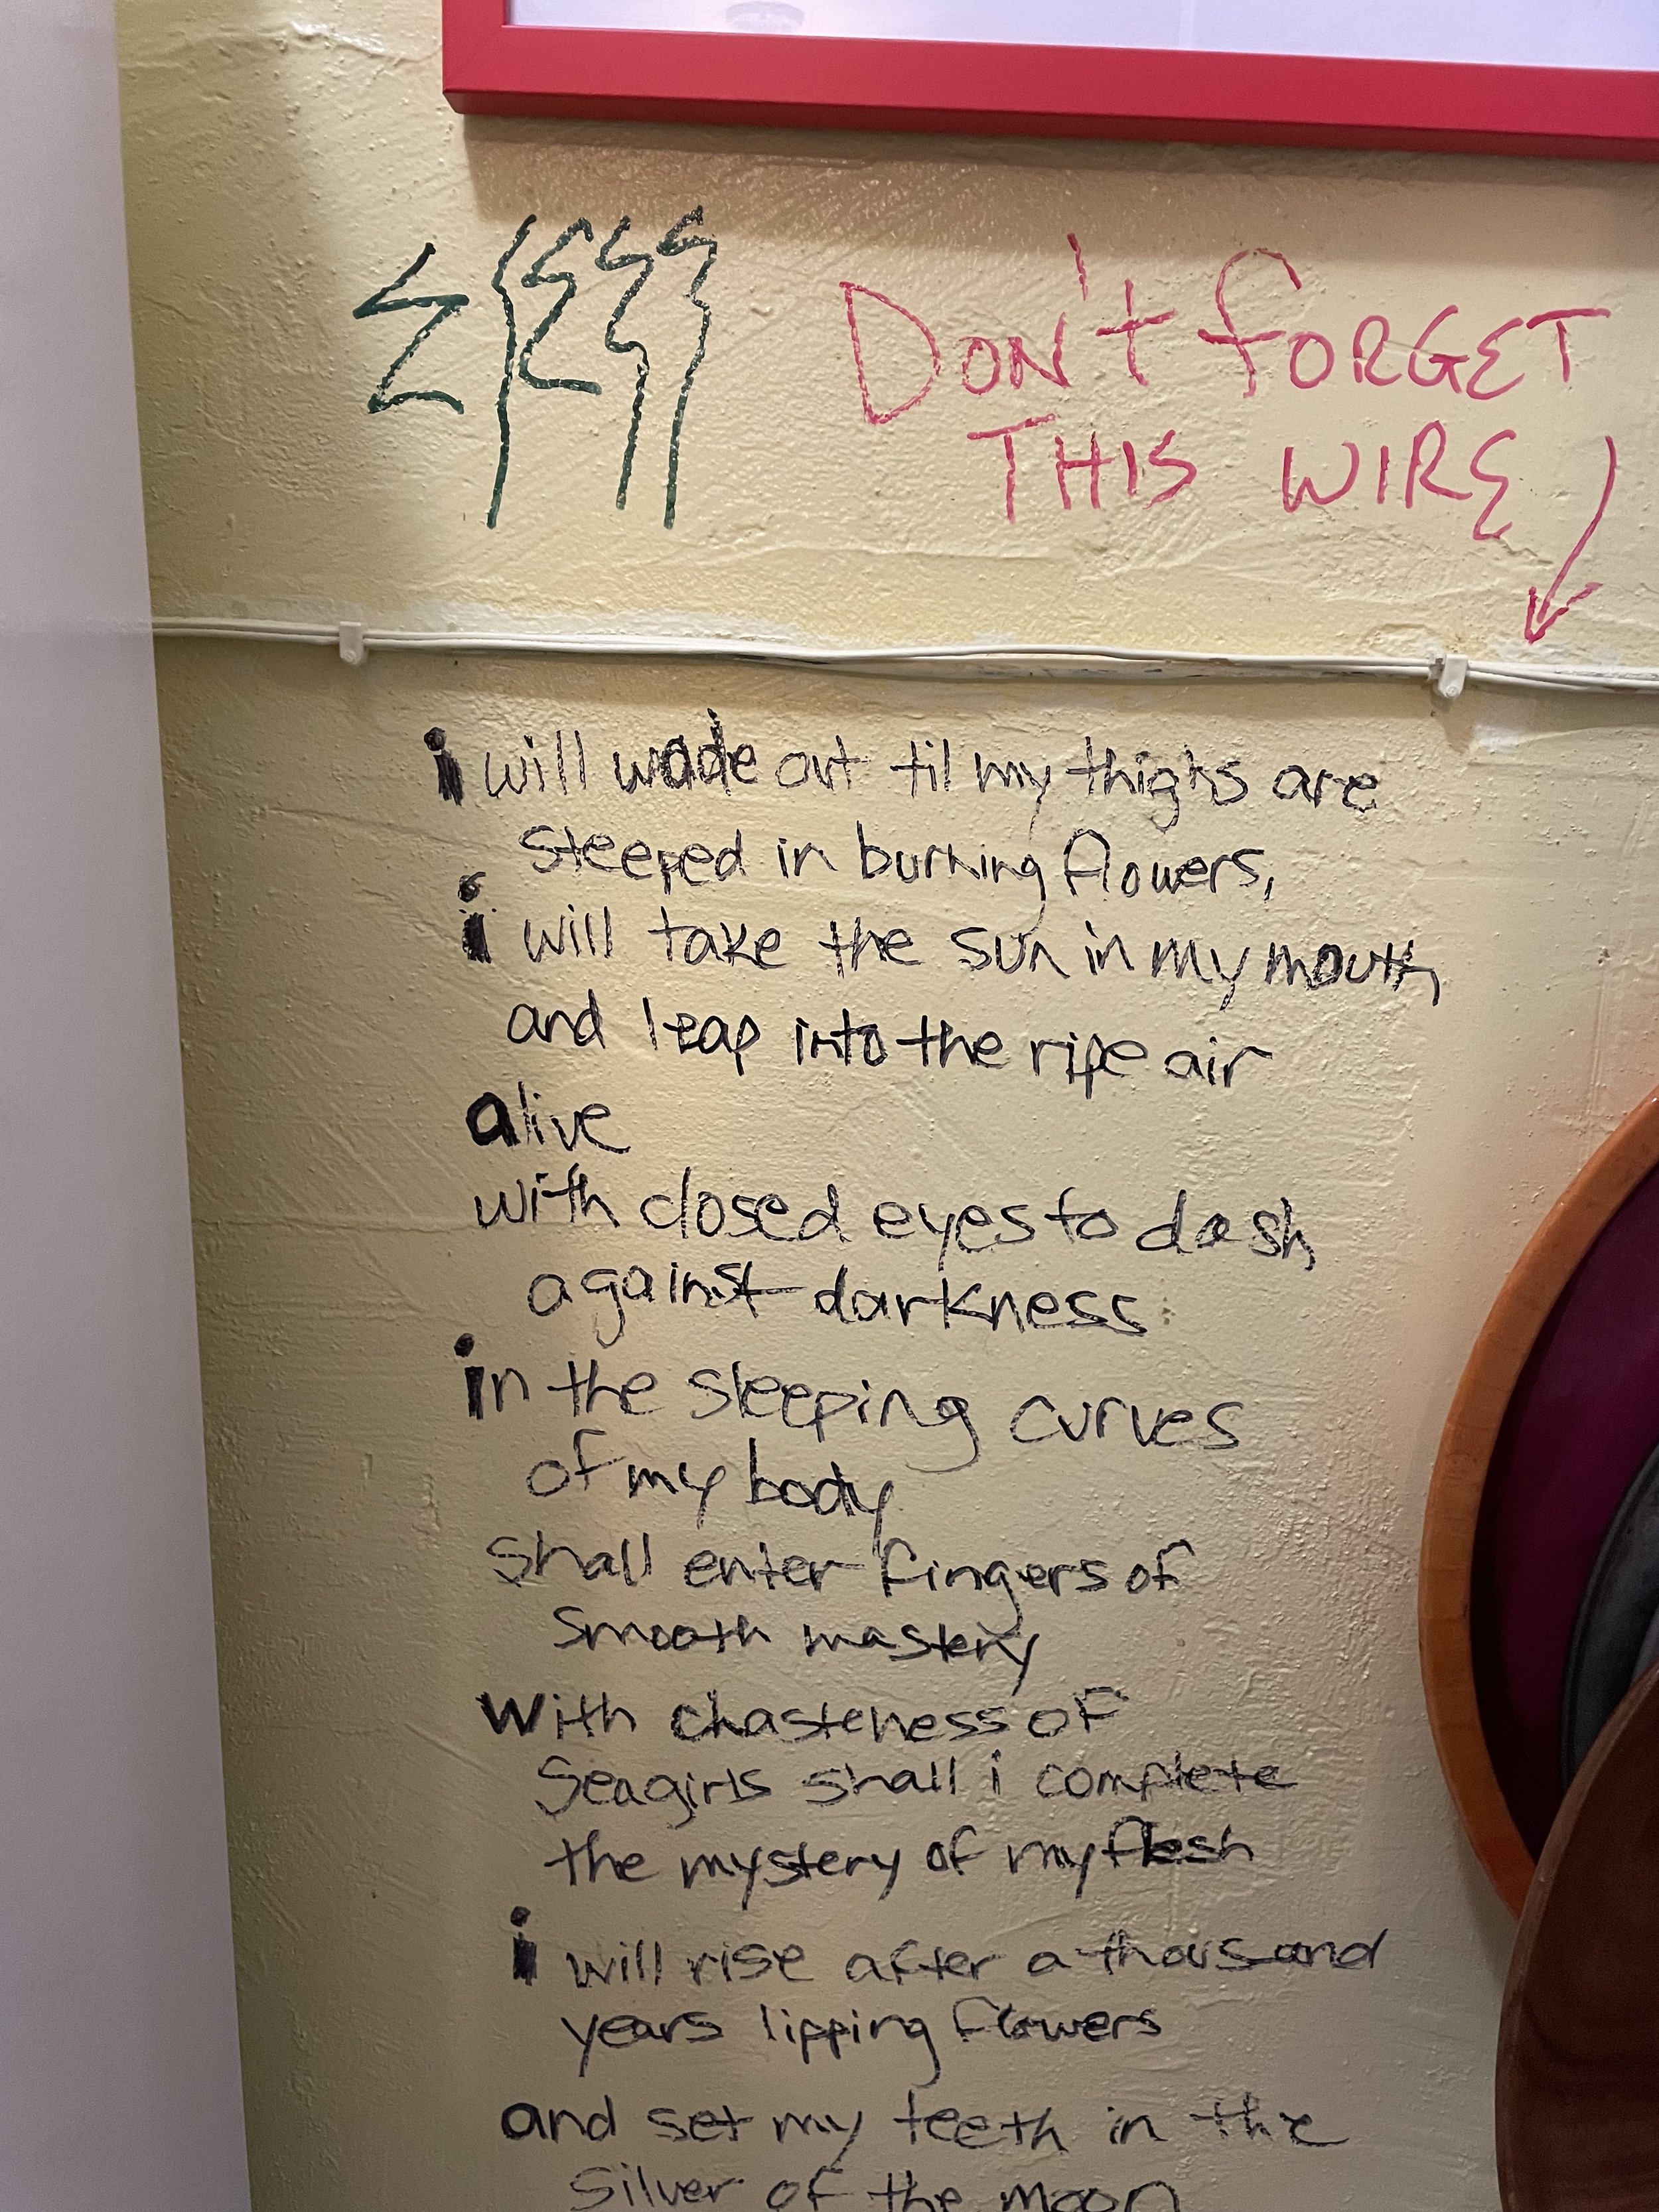 DON'T FORGET
THIS WIRE
i will wade out til my thighs are
steeped in burning flowers,
i will take the sun in my mouth
and leap into the ripe air
alive
with closed eyes to dash
against darkness
in the sleeping curves
of my body
shall enter fingers of
smooth mastery
with chasteness of
seagirls shall i complete
the mystery of my flesh
i will rise after a thousand
years lipping flowers
and set my teeth in the
silver of the moon